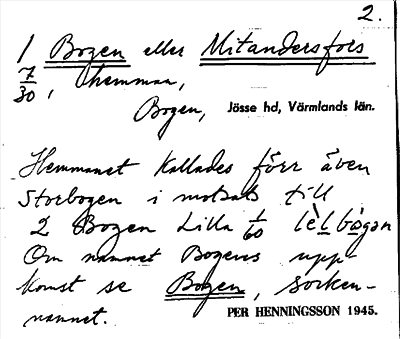 2.
1 Bogen eller Mitandersfors
7/30, hemman,
Bogen, Jösse hd, Värmlands län.
Hemmanet kallades förr även
Storbogen i motsats till
2 Bogen Lilla 1/60 lèl bo̲gan
Om namnet Bogens upp-
komst se Bogen, socken-
namnet.
PER HENNINGSSON 1945.